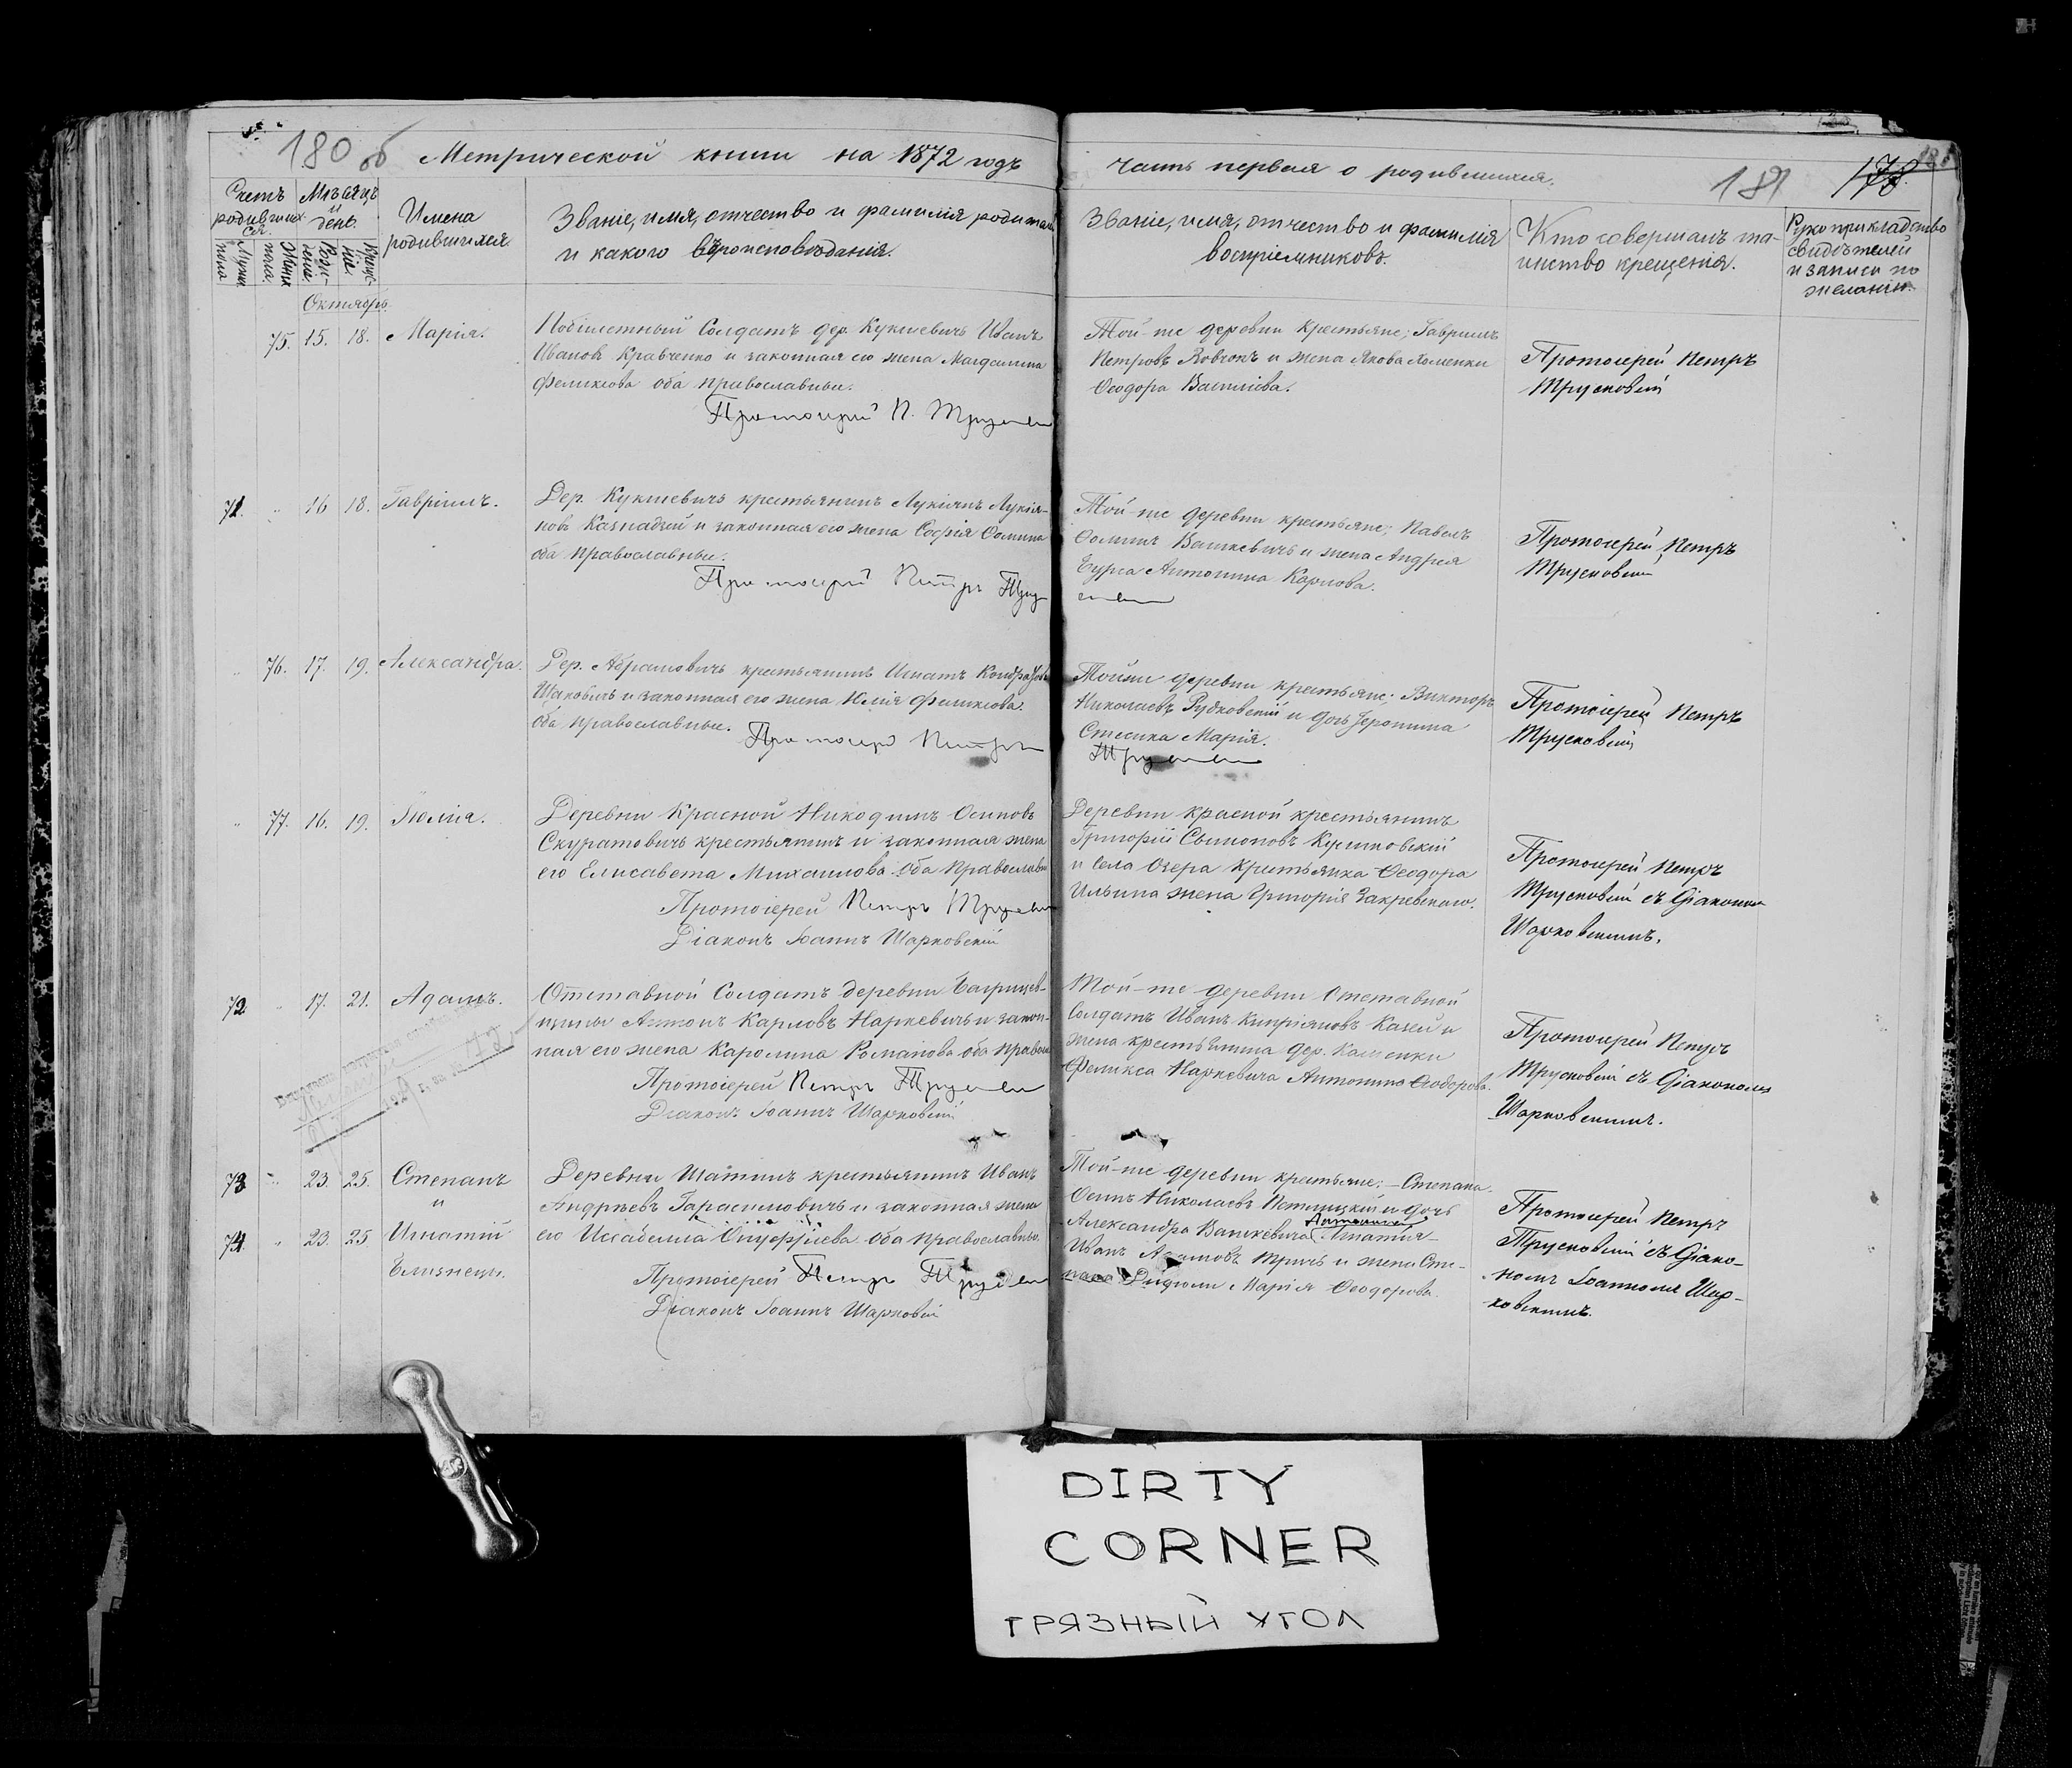 180 об Метрической книги на 1872 годъ
часть первая о родившихся.
181
178
Счетъ родившихся.
Мужеска пола
Женска пола.
Мѣсяцъ и день.
Рожденіе.
Крещеніе.
Имена родившихся
Званіе, имя, отчество и фамилія родителей
и какого вѣроисповѣданія.
Званіе, имя, отчество и фамилія
воспріемниковъ.
Кто совершалъ та-
инство крещенія.
Рукоприкладство
свидѣтелей
и записи по
желанію.
Октябрь
75. 15. 18. Марія.
Побілетный Солдатъ дер. Кукшевичъ Иванъ
Ивановъ Кравченко и законная его жена Магдалина
Феликсова оба православные.
Протоіерей П.
Той-же деревни Крестьяне; Гавріилъ
Петровъ и жена Якова Хоменки
Ѳеодора Васильева.
Протоіерей Петръ
Трусковскій
71. 16 18. Гавріилъ.
Дер. Кукшевичъ крестьянинъ Лукіянъ Лукія-
новъ Казнадзей и законная его жена Софія Ѳомина
оба православные.
Протоіерей Петръ
Той-же деревни крестьяне; Павелъ
Ѳоминъ Вашкевичъ и жена Андрея
Антонина Карлова.
Протоіерей Петръ
Трусковскій
76. 17. 19. Александра.
Дер. Абрамовичъ крестьянинъ Игнатъ Кондратовъ
и законная его жена Юлія Феликсова
оба православные.
Протоіерей Петръ
Тойже деревни крестьяне; Викторъ
Николаевъ Рудковскій и дочь Іеронима
Марія.
Протоіерей Петръ
Трусковскій
77. 16. 19. Юлія.
Деревни Красной Никодимъ Осиповъ
Скуратовичъ крестьянинъ и законная жена
его Елисавета Михаилова оба православные
Протоіерей Петръ
Діаконъ Іоаннъ Шарковскій
Деревни Красной крестьянинъ
Григорій Симоновъ
и села Озера крестьянка Ѳеодора
Ильина жена Григорія Закревскаго.
Протоіерей Петръ
Трусковскій съ Діакономъ
Шарковскимъ.
72. 17. 21. Адамъ.
Отставной Солдатъ деревни
Антонъ Карловъ Наркевичъ и закон-
ная его жена Каролина Романова оба правосл
Протоіерей Петръ
Діаконъ Іоаннъ Шарковскій
Той-же деревни Отставной
Солдатъ Иванъ Кипріяновъ Казей и
жена крестьянина дер. Каменки
Феликса Наркевича Антонина Ѳеодорова.
Протоіерей Петръ
Трусковскій съ Діакономъ
Шарковскимъ.
73. 23. 25. Степанъ
и
74. 23. 25 Игнатій
Близнецы.
Деревни Шатилъ крестьянинъ Иванъ
Андреевъ Гарасимовичъ и законная жена
его Иссабелла Онуфріева оба православные.
Протоіерей Петръ
Діаконъ Іоаннъ Шарковскій
Той-же деревни крестьяне: Степана
Осипъ Николаевъ и дочь
Александра Вашкевича Антонина Игнатія
Иванъ и жена Сте-
пана Марія Ѳеодорова.
Протоіерей Петръ
Трусковскій съ Діако-
номъ Іоанномъ Шар-
ковскимъ.
DIRTY
CORNER
ГРЯЗНЫЙ УГОЛ